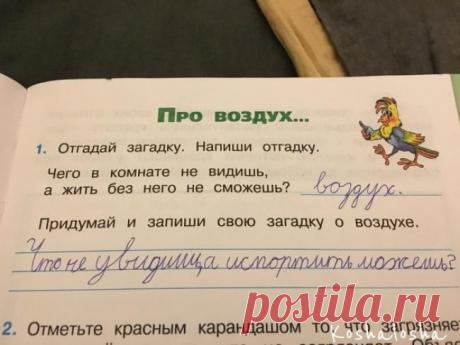 Про воздух...
1. Отгадай загадку. Напиши отгадку.
Чего в комнате не видишь,
а жить без него не сможешь? воздух.
Придумай и запиши свою загадку о воздухе.
Что не увидища испортить можешь?
postila.ru
KoshaTosha
2. Отметьте красным карандашом то, что загрязняет